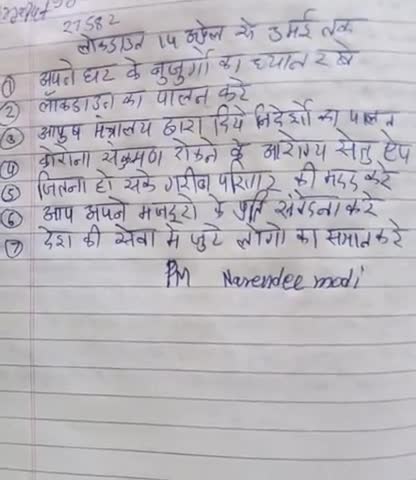 27582
लोकडाउन 14 अप्रेल से 3 मई तक
① अपने घर के बुजुर्गो का ध्यान रखे
② लॉकडाउन का पालन करे
③ आयुष मंत्रालय द्वारा दिये निर्देशो का पालन
④ कोरोना संक्रमण रोकने के आरोग्य सेतु ऐप
⑤ जितना हो सके गरीब परिवार की मदद करे
⑥ आप अपने मजदूरो के प्रति संवेदना करे
⑦ देश की सेवा मे जुटे लोगो का समान करे
PM Narendee modi